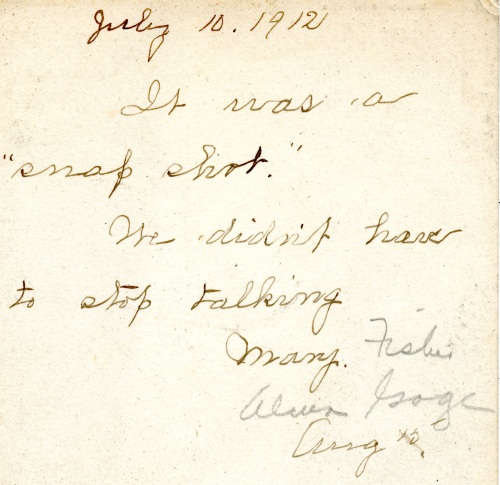 July 10. 1912
It was a
"snap shot."
We didn't have
to stop talking
Mary. Fisher
Aug